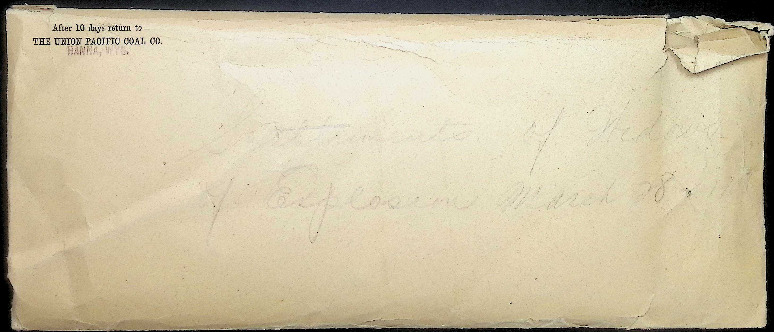 After 10 days return to
THE UNION PACIFIC COAL CO.
HANNA, WYO.
Settlements of Widows
of Explosion March 28